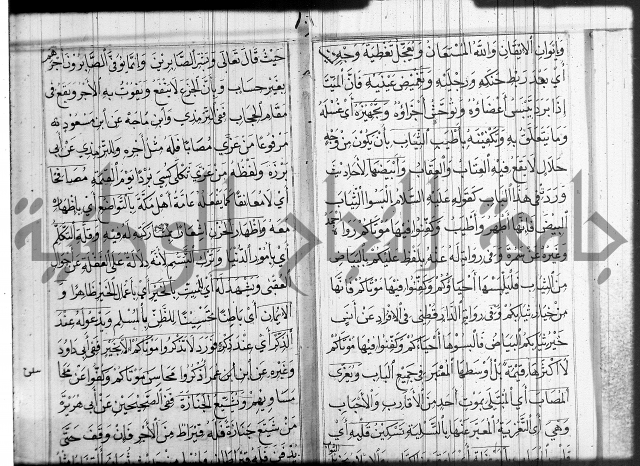 وأبواب الاتقان والله المستعان ويعجل بتغطية وجهه
أي بعد ربط حنكه ورجليه وتغميض عينيه فان الميت
اذا برد تيبس أعضاؤه وتجهيزه أي غسله
وما يتعلق به وتكفينه بأطيب الثياب بأن يكون من وجه
حلال لا يقع فيه العتاب والعقاب وأبيضها لأحاديث
وردت في هذا الباب كقوله عليه السلام البسوا الثياب
البيض فانها أطهر وأطيب وكفنوا فيها موتاكم رواه أحمد
وغيره عن سمرة وفي رواية له عليكم بالبياض
من الثياب فليلبسها أحياؤكم وكفنوا فيها موتاكم فانها
من خيار ثيابكم وفي رواية الدارقطني في الافراد عن أنس
خير ثيابكم البياض فألبسوها أحياءكم وكفنوا فيها موتاكم
لا أكثرها قيمة بل أوسطها المعتبر في جميع الباب ويعزى
المصاب أي المبتلى بموت أحد من الأقارب والأحباب
وهي أي التعزية المعبر عنها بالتسلية تسكين قلبه أي
حيث قال تعالى وبشر الصابرين وانما يوفى الصابرون أجرهم
بغير حساب وبأن الجزع لا ينفع ويفوت به الأجر ويقع في
مقام الحجاب ففي الترمذي وابن ماجة عن ابن مسعود
مرفوعا من عزى مصابا فله مثل أجره وللترمذي عن أبي
برزة ولفظه من عزى ثكلى كسي بردا يوم القيمة
أي لا معانقا كما يفعله عامة أهل مكة بالتواضع أي باظهاره
معه واظهار الحزن وقلة التكلم
أي بأمور الدنيا وترك التبسم لأنه دلالة على الغفلة عن
العقبى ويشهد له أي للميت بالخير أي بأعمال الخير ظاهرا و
الايمان أي باطنا تحسينا للظن بالمسلم ويدعو له عند
الذكر أي عند ذكره فورد لا تذكروا موتاكم الا بخير ففي أبي داود
وغيره عن ابن عمر اذكروا محاسن موتاكم وكفوا عن
مساويهم وتشييع الجنازة ففي الصحيحين عن أبي هريرة
من شيع جنازة فله قيراط من الأجر فان وقف حتى
جامعة النجاح الوطنية